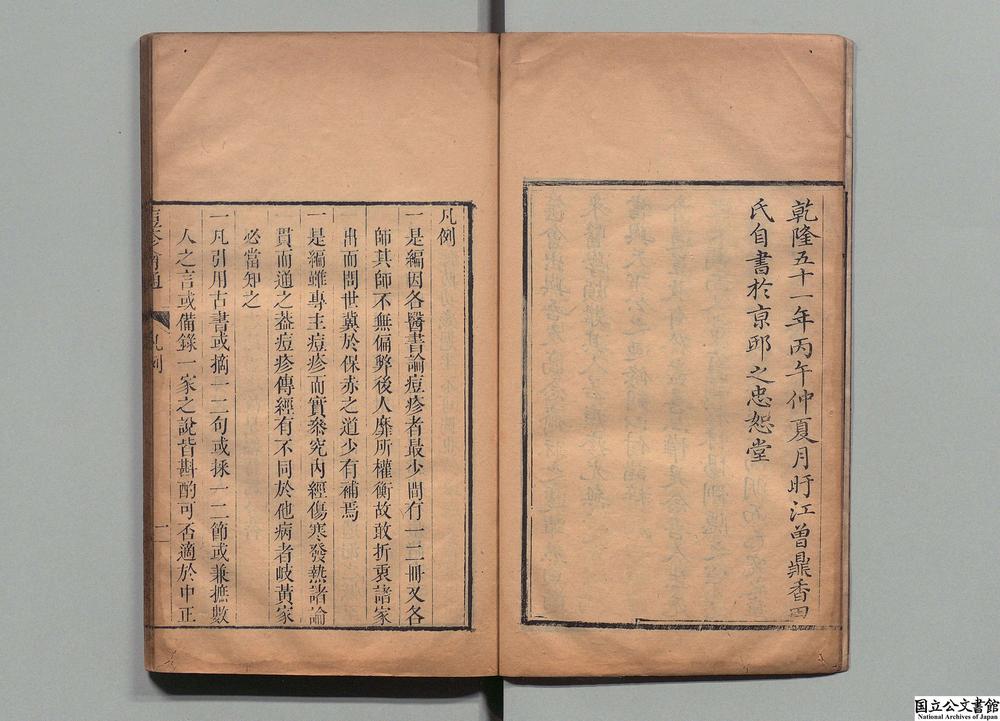 乾隆五十一年丙午仲夏月盱江曾鼎香田
氏自書於京邸之忠恕堂
凡例
一是編因各醫書論痘疹者最少間有一二冊又各
師其師不無偏弊後人靡所權衡故敢折衷諸家
出而問世冀於保赤之道少有補焉
一是編雖專主痘疹而實叅究內經傷寒發熱諸論
貫而通之葢痘疹傳經有不同於他病者岐黃家
必當知之
一凡引用古書或摘一二句或採一二節或兼摭數
人之言或備錄一家之說皆斟酌可否適於中正
痘疹會通
凡例
一
国立公文書館
National Archives of Japan